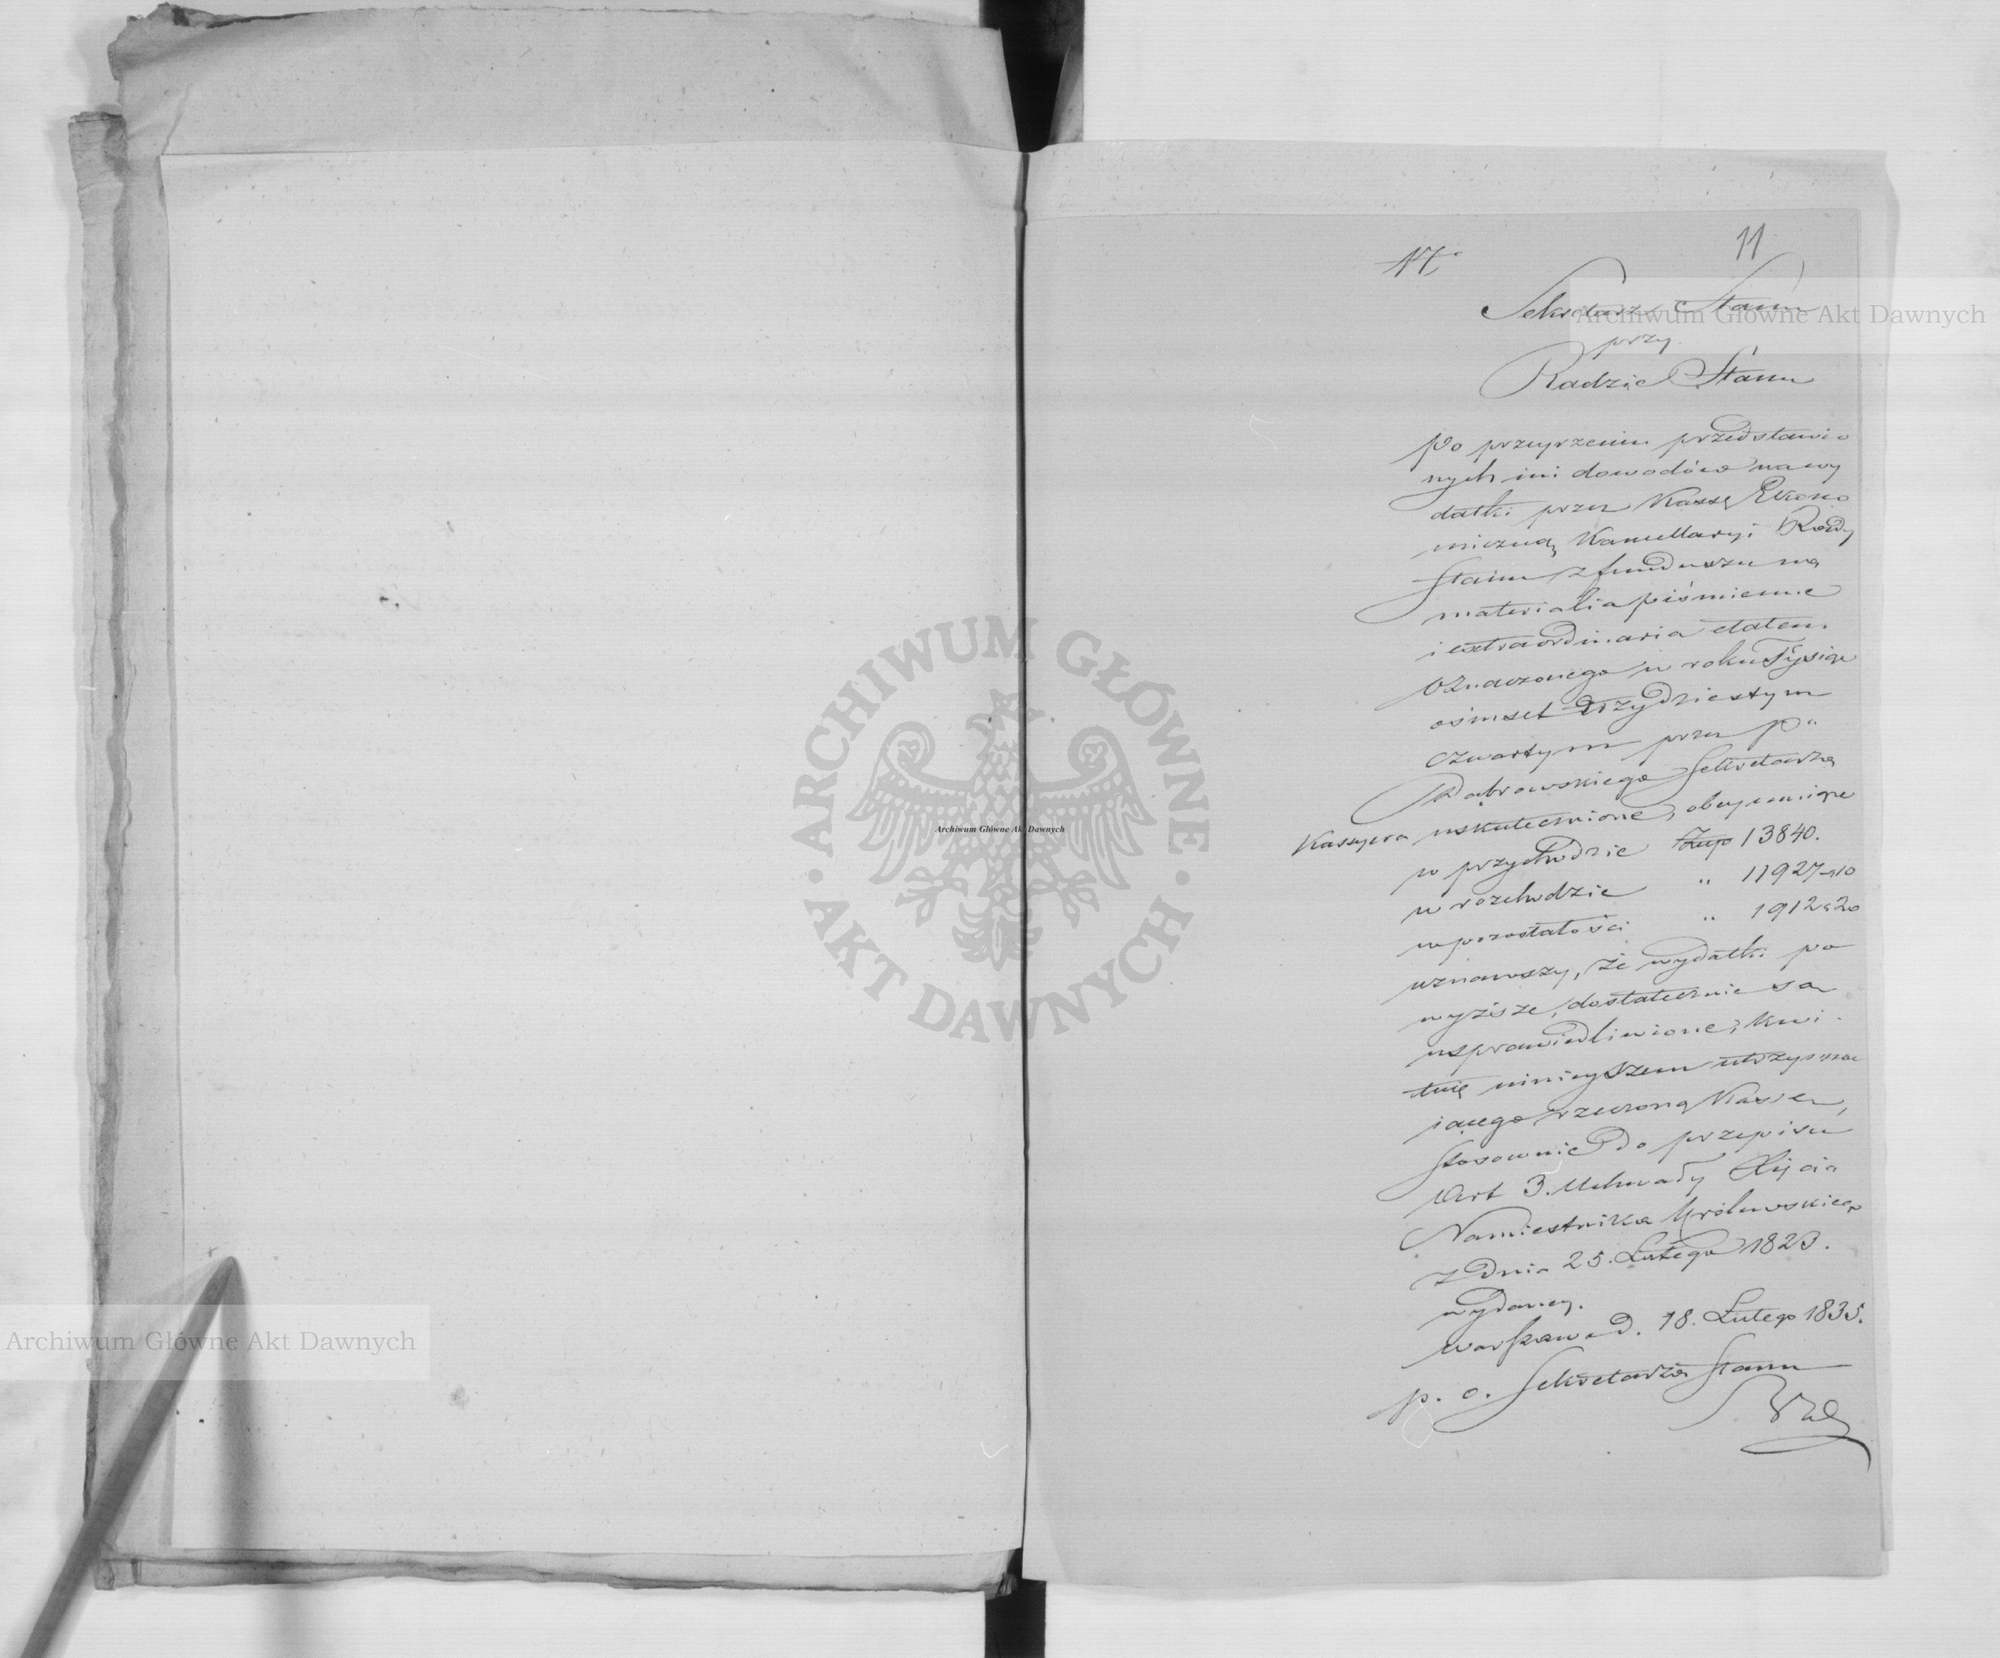 17.
11
Sekretarz Stanu
przy
Radzie Stanu
Po przeyrzeniu przedstawio
nych mi dowodów na wy
datki przez Kassę Ekono
miczną Kancellaryi Rady
Stanu z funduszu na
materialia piśmienne
i extraordinaria etatem
oznaczonego w roku Tysiąc
ośmset trzydziestym
czwartym przez P"
Dąbrowskiego Sekretarza
Kassyera uskutecznione, obeymuiące
w przychodzie Złp 13840.
w rozchodzie " 11927 „ 10
w pozostałości " 1912 „ 20
uznawszy, że wydatki po
wyższe, dostatecznie są
usprawiedliwione, kwi
tuię ninieyszem utrzymu
iącego rzeczoną Kassę,
stosownie do przepisu
Art 3. Uchwały Xięcia
Namiestnika Królewskiego
z dnia 25. Lutego 1823.
wydaney.
Warszawa d. 18. Lutego 1835.
p. o. Sekretarza Stanu
Archiwum Główne Akt Dawnych
Archiwum Główne Akt Dawnych
Archiwum Główne Akt Dawnych
ARCHIWUM GŁÓWNE
AKT DAWNYCH